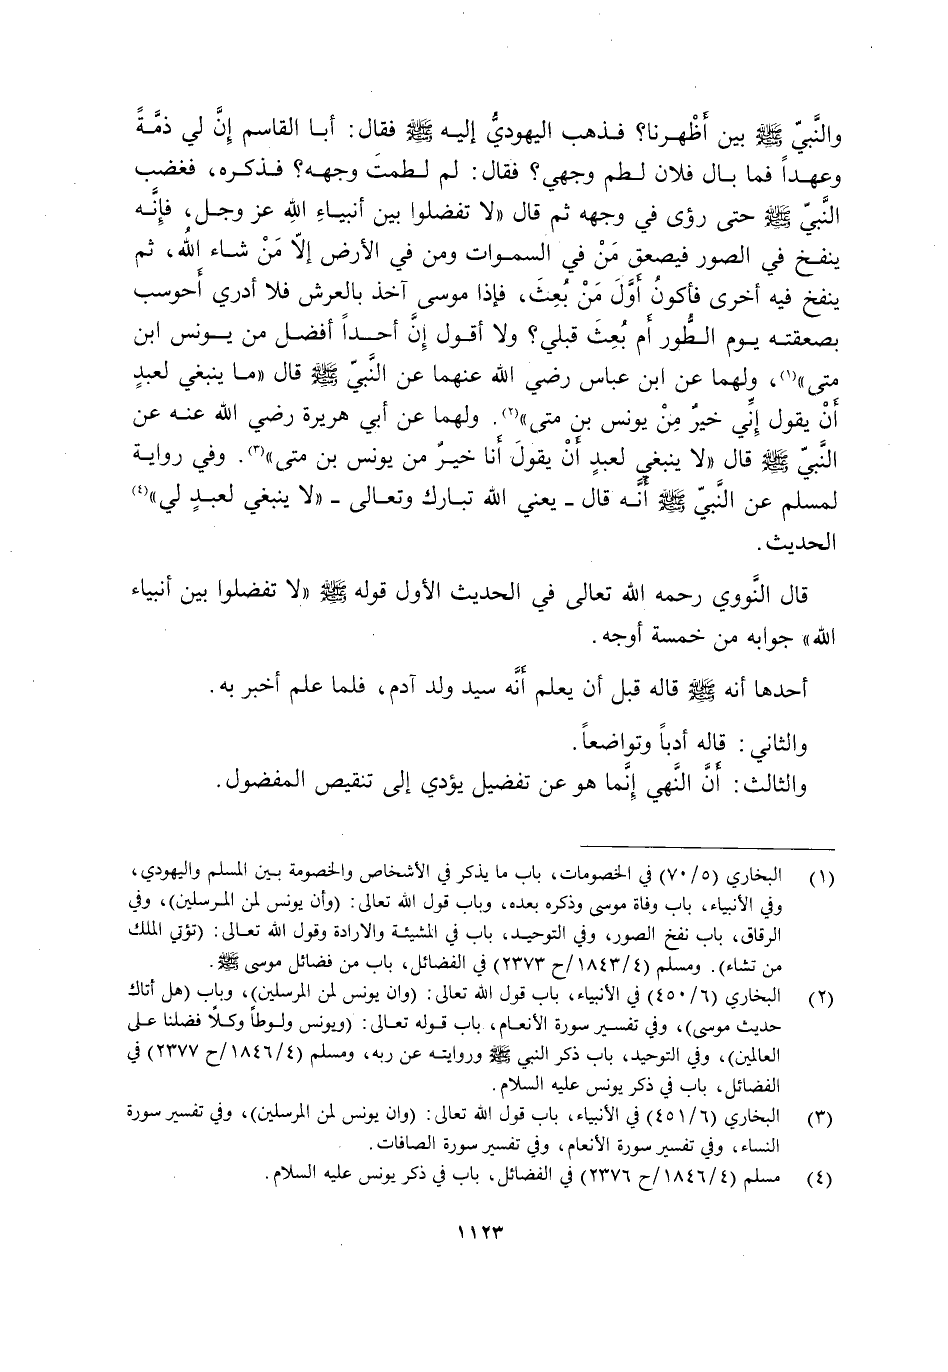 والنَّبيّ ﷺ بين أَظْهرنا؟ فـذهب اليهوديُّ إليـه ﷺ فقال: أبـا القاسم إنَّ لي ذمَّـةً
وعهـداً فما بـال فلان لـطم وجهي؟ فقال: لم لـطمتَ وجهـه؟ فـذكـره، فغضب
النَّبيّ ﷺ حتى رؤى في وجهه ثم قال «لا تفضلوا بين أنبيـاءِ اللهِ عز وجـل، فإنَّـه
ينفـخ في الصور فيصعق مَنْ في السمـوات ومن في الأرض إلّا مَنْ شـاء اللهُ، ثم
ينفخ فيه أخرى فأكونُ أَوَّلَ مَنْ بُعِثَ، فإذا موسى آخذ بالعرش فلا أدري أَحوسب
بصعقتـه يـوم الـطُّور أم بُعِثَ قبلي؟ ولا أقـول إنَّ أحـداً أفضـل من يـونس ابن
متى»(١)، ولهما عن ابن عباس رضي الله عنهما عن النَّبيّ ﷺ قال «مـا ينبغي لعبدٍ
أَنْ يقول إِنِّي خيرٌ مِنْ يونس بن متى»(٢). ولهما عن أبي هريرة رضي الله عنـه عن
النَّبيّ ﷺ قال «لا ينبغي لعبدٍ أَنْ يقولَ أَنا خيـرٌ من يونس بن متى»(٣). وفي روايـة
لمسلم عن النَّبيّ ﷺ أَنَّـه قال ـ يعني الله تبـارك وتعـالى ـ «لا ينبغي لعبـدٍ لي»(٤)
الحديث.
قال النَّووي رحمه الله تعالى في الحديث الأول قوله ﷺ «لا تفضلوا بين أنبياء
الله» جوابه من خمسة أوجه.
أحدها أنه ﷺ قاله قبل أن يعلم أَنَّه سيد ولد آدم، فلما علم أخبر به.
والثاني: قاله أدباً وتواضعاً.
والثالث: أَنَّ النَّهي إِنَّما هو عن تفضيل يؤدي إلى تنقيص المفضول.
(١) البخاري (٧٠/٥) في الخصومات، باب ما يذكر في الأشخاص والخصومة بـين المسلم واليهودي،
وفي الأنبياء، باب وفاة موسى وذكره بعده، وباب قول الله تعالى: (وأن يونس لمن المرسلين)، وفي
الرقاق، باب نفخ الصور، وفي التوحيـد، باب في المشيئة والارادة وقول الله تعـالى: (تؤتي الملك
من تشاء). ومسلم (١٨٤٣/٤/ح ٢٣٧٣) في الفضائل، باب من فضائل موسى ﷺ.
(٢) البخاري (٤٥٠/٦) في الأنبياء، باب قول الله تعالى: (وان يونس لمن المرسلين)، وباب (هل أتاك
حديث موسى)، وفي تفسير سورة الأنعـام، باب قـوله تعـالى: (ويونس ولـوطاً وكـلًا فضلنا عـلى
العالمين)، وفي التوحيد، باب ذكر النبي ﷺ وروايتـه عن ربه، ومسلم (١٨٤٦/٤/ح ٢٣٧٧) في
الفضائل، باب في ذكر يونس عليه السلام.
(٣) البخاري (٤٥١/٦) في الأنبياء، باب قول الله تعالى: (وان يونس لمن المرسلين)، وفي تفسير سورة
النساء، وفي تفسير سورة الأنعام، وفي تفسير سورة الصافات.
(٤) مسلم (١٨٤٦/٤/ح ٢٣٧٦) في الفضائل، باب في ذكر يونس عليه السلام.
١١٢٣